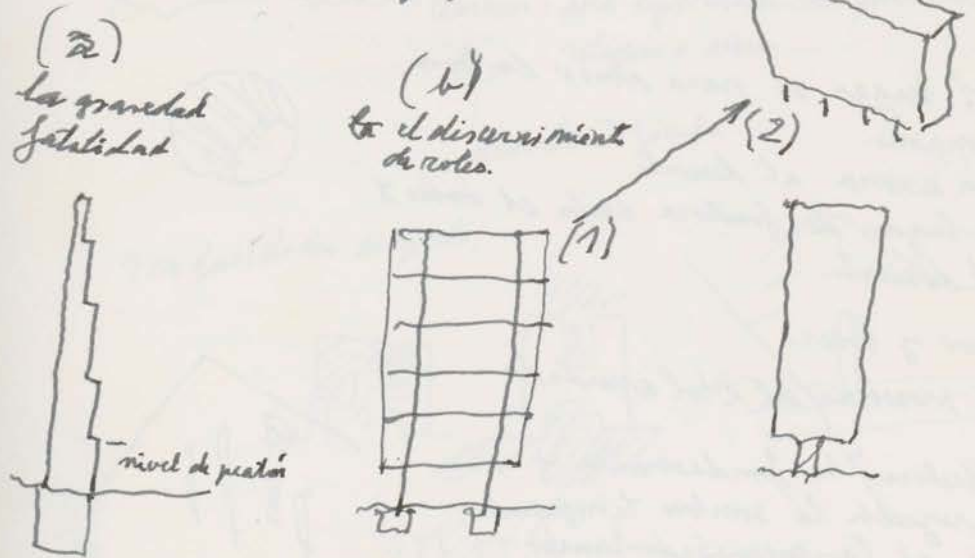 (a)
la gravedad
fatalidad
(b)
el discernimiento
de roles.
(1)
(2)
nivel de peatón